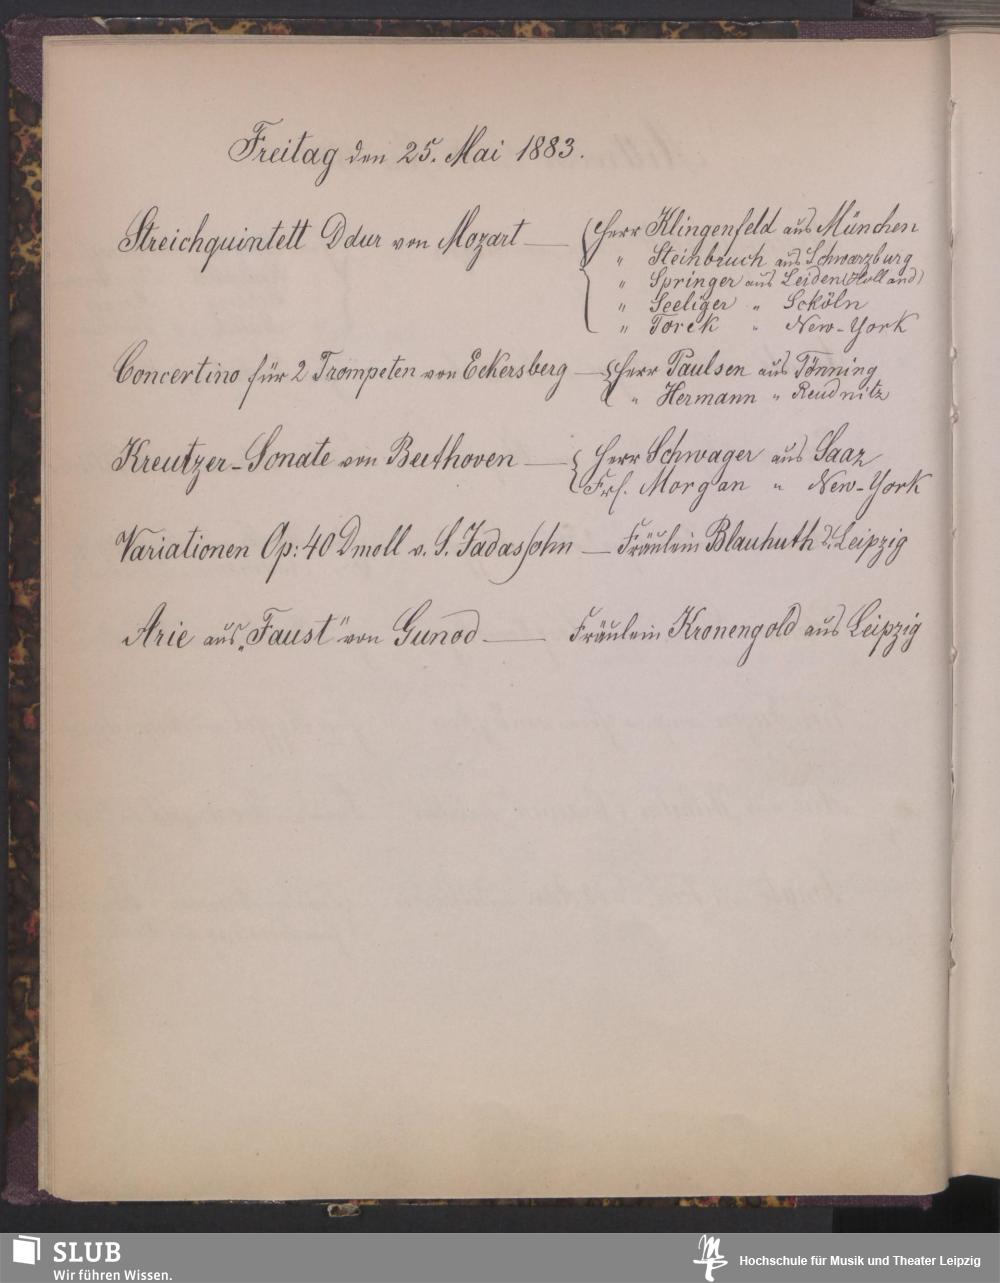 Freitag den 25. Mai 1883.
Streichquintett Ddur von Mozart — Herr Klingenfeld aus München
" Steinbruch aus Schwarzburg
" Springer aus Leiden (Holland)
" Seeliger " Scköln
" Torek " New-York
Concertino für 2 Trompeten von Eckersberg — Herr Paulsen aus Tönning
" Hermann " Reudnitz
Kreutzer-Sonate von Beethoven — Herr Schwager aus Saaz
Frl. Morgan " New-York
Variationen Op: 40 Dmoll v. S. Jadassohn — Fräulein Blauhuth a. Leipzig
Arie aus „Faust" von Gunod — Fräulein Kronengold aus Leipzig
SLUB
Wir führen Wissen.
Hochschule für Musik und Theater Leipzig